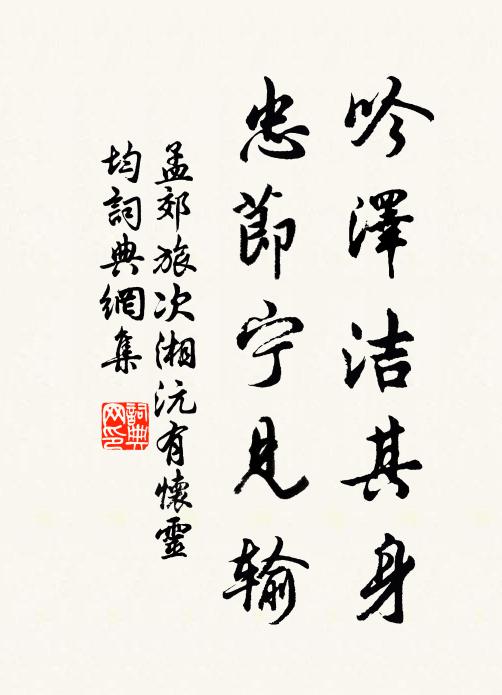 吟澤洁其身
忠節宁見输
孟郊旅次湘沅有懷靈
均詞典網集
詞典网印